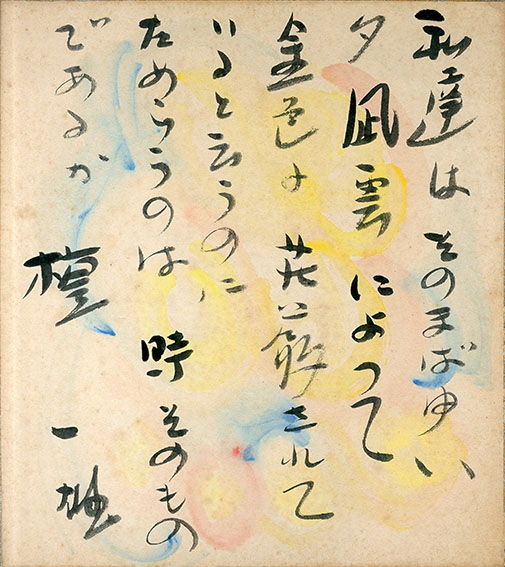 私達はそのまばゆい
夕凪雲によって
金色に荘厳されて
いると云うのに
ためらうのは 時そのもの
であるか
檀 一雄